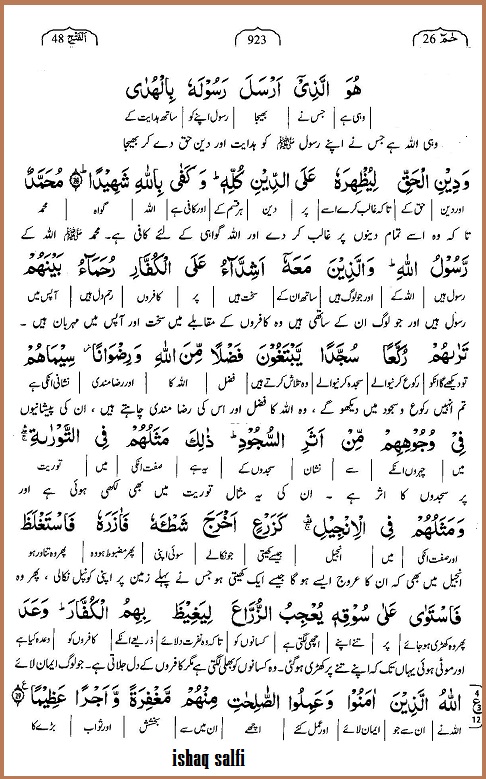 الفتح 48 923 حٰمٓ 26
هُوَ الَّذِیْۤ اَرْسَلَ رَسُوْلَهٗ بِالْهُدٰی
وہی ہے جس نے بھیجا رسول اپنے کو ساتھ ہدایت کے
وہی اللہ ہے جس نے اپنے رسول ﷺ کو ہدایت اور دین حق دے کر بھیجا
وَ دِیْنِ الْحَقِّ لِیُظْهِرَهٗ عَلَی الدِّیْنِ كُلِّهٖ ؕ وَ كَفٰی بِاللّٰهِ شَهِیْدًا ؕ۲۸ مُحَمَّدٌ
اور دین حق کے تا کہ غالب کرے اسے پر دین ہر قسم کے اور کافی ہے اللہ گواہ محمد
تا کہ وہ اسے تمام دینوں پر غالب کر دے اور اللہ گواہی کے لئے کافی ہے۔ محمد ﷺ اللہ کے
رَّسُوْلُ اللّٰهِ ؕ وَ الَّذِیْنَ مَعَهٗۤ اَشِدَّآءُ عَلَی الْكُفَّارِ رُحَمَآءُ بَیْنَهُمْ
رسول ہیں اللہ کے اور جو لوگ ہیں ساتھ ان کے سخت ہیں پر کافروں رحم دل ہیں آپس میں
رسول ہیں اور جو لوگ ان کے ساتھی ہیں وہ کافروں کے مقابلے میں سخت اور آپس میں مہربان ہیں ۔
تَرٰىهُمْ رُكَّعًا سُجَّدًا یَّبْتَغُوْنَ فَضْلًا مِّنَ اللّٰهِ وَ رِضْوَانًا ؗ سِیْمَاهُمْ
تو دیکھے گا انکو رکوع کرنیوالے سجدہ کرنیوالے وہ تلاش کرتے ہیں فضل اللہ کا اور رضا مندی نشانی انکی ہے
تم انہیں رکوع و سجود میں دیکھو گے ، وہ اللہ کا فضل اور اس کی رضا مندی چاہتے ہیں ، ان کی پیشانیوں
فِیْ وُجُوْهِهِمْ مِّنْ اَثَرِ السُّجُوْدِ ؕ ذٰلِكَ مَثَلُهُمْ فِی التَّوْرٰىةِ
میں چہروں انکے سے نشان سجدوں کے یہ ہے صفت انکی میں توریت
پر سجدوں کا اثر ہے ۔ ان کی یہ مثال توریت میں بھی لکھی ہوئی ہے اور
وَ مَثَلُهُمْ فِی الْاِنْجِیْلِ كَزَرْعٍ اَخْرَجَ شَطْـَٔهٗ فَاٰزَرَهٗ فَاسْتَغْلَظَ
اور صفت انکی میں انجیل جیسے کھیتی جو نکالے سوئی اپنی پھر مضبوط ہو وہ پھر وہ تناور ہو
انجیل میں بھی کہ ان کا عروج ایسے ہو گا جیسے ایک کھیتی ہو جس نے پہلے زمین پر اپنی کونپل نکالی ، پھر وہ
فَاسْتَوٰی عَلٰی سُوْقِهٖ یُعْجِبُ الزُّرَّاعَ لِیَغِیْظَ بِهِمُ الْكُفَّارَ ؕ وَعَدَ
پھر وہ کھڑی ہو جائے پر تنے اپنے اچھی لگتی ہے کسانوں کو تا کہ وہ نفرت دلائے ذریعے انکے کافروں کو وعدہ کیا ہے
اور موٹی ہوئی یہاں تک کہ اپنے تنے پر کھڑی ہو گئی۔ وہ کسانوں کو بھلی لگتی ہے مگر کافروں کے دل جلاتی ہے۔ جو لوگ ایمان لائے
اللّٰهُ الَّذِیْنَ اٰمَنُوْا وَ عَمِلُوا الصّٰلِحٰتِ مِنْهُمْ مَّغْفِرَةً وَّ اَجْرًا عَظِیْمًا ۲۹ ع
4 3 12
اللہ نے ان سے جو ایمان لائے اور عمل کئے اچھے ان میں سے بخشش اور ثواب بڑے کا
ishaq salfi